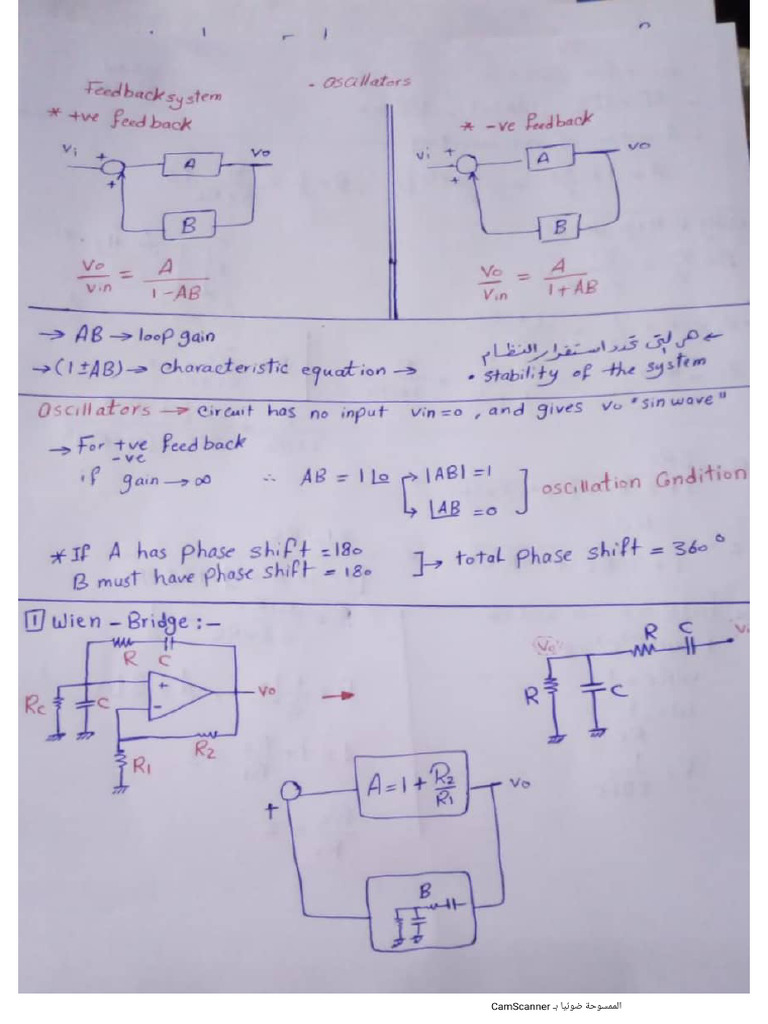 - Oscillators
Feedback system
* +ve feedback
Vi + A Vo
+
B
Vo/Vin = A/1-AB
* -ve feedback
Vi + A Vo
+
B
Vo/Vin = A/1+AB
→ AB → loop gain
→ (1±AB) → characteristic equation →
← هي التي تحدد استقرار النظام
• stability of the system
Oscillators → circuit has no input Vin=0, and gives Vo "sin wave"
→ For +ve feedback
-ve
if gain → ∞ ∴ AB = 1∠0 → |AB| = 1
↳ ∠AB = 0
] oscillation Condition
* If A has phase shift = 180
B must have phase shift = 180
] → total phase shift = 360°
1 Wien - Bridge :-
R C
Rc C + - Vo →
R2
R1
R C
R C
A = 1 + R2/R1 Vo
+
B
الممسوحة ضوئيا بـ CamScanner